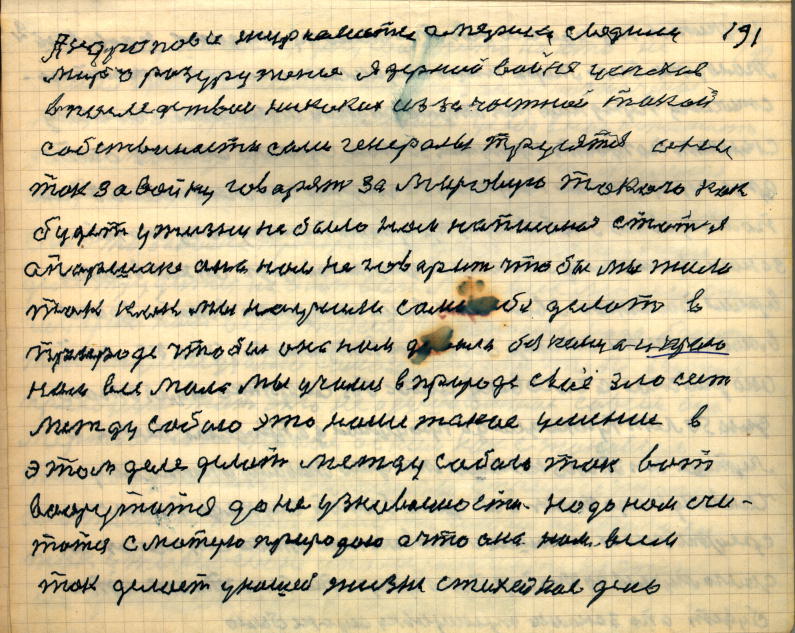 Андроповы журналисты америки сведили 191
мир о разуружения ядерной война успехов
впоследствии никаких изза частной такой
собствиности сами генералы трусятся они
так за войну говарят за мировую такого как
будет у жизни не было нам написоная статья
опоршаке она нам не говарит чтобы мы жили
так как мы научили сами себе делать в
природе чтобы она нам давала без канца и краю
нам все мала мы учимся в природе своё зло сеит
между собаю это наше такое умение в
этом деле делать между собаю так вот
вооружатся до не узноваимости. надо нам счи-
татя с матерю природаю а что она нам всем
так делает у нашей жизни стихейное день